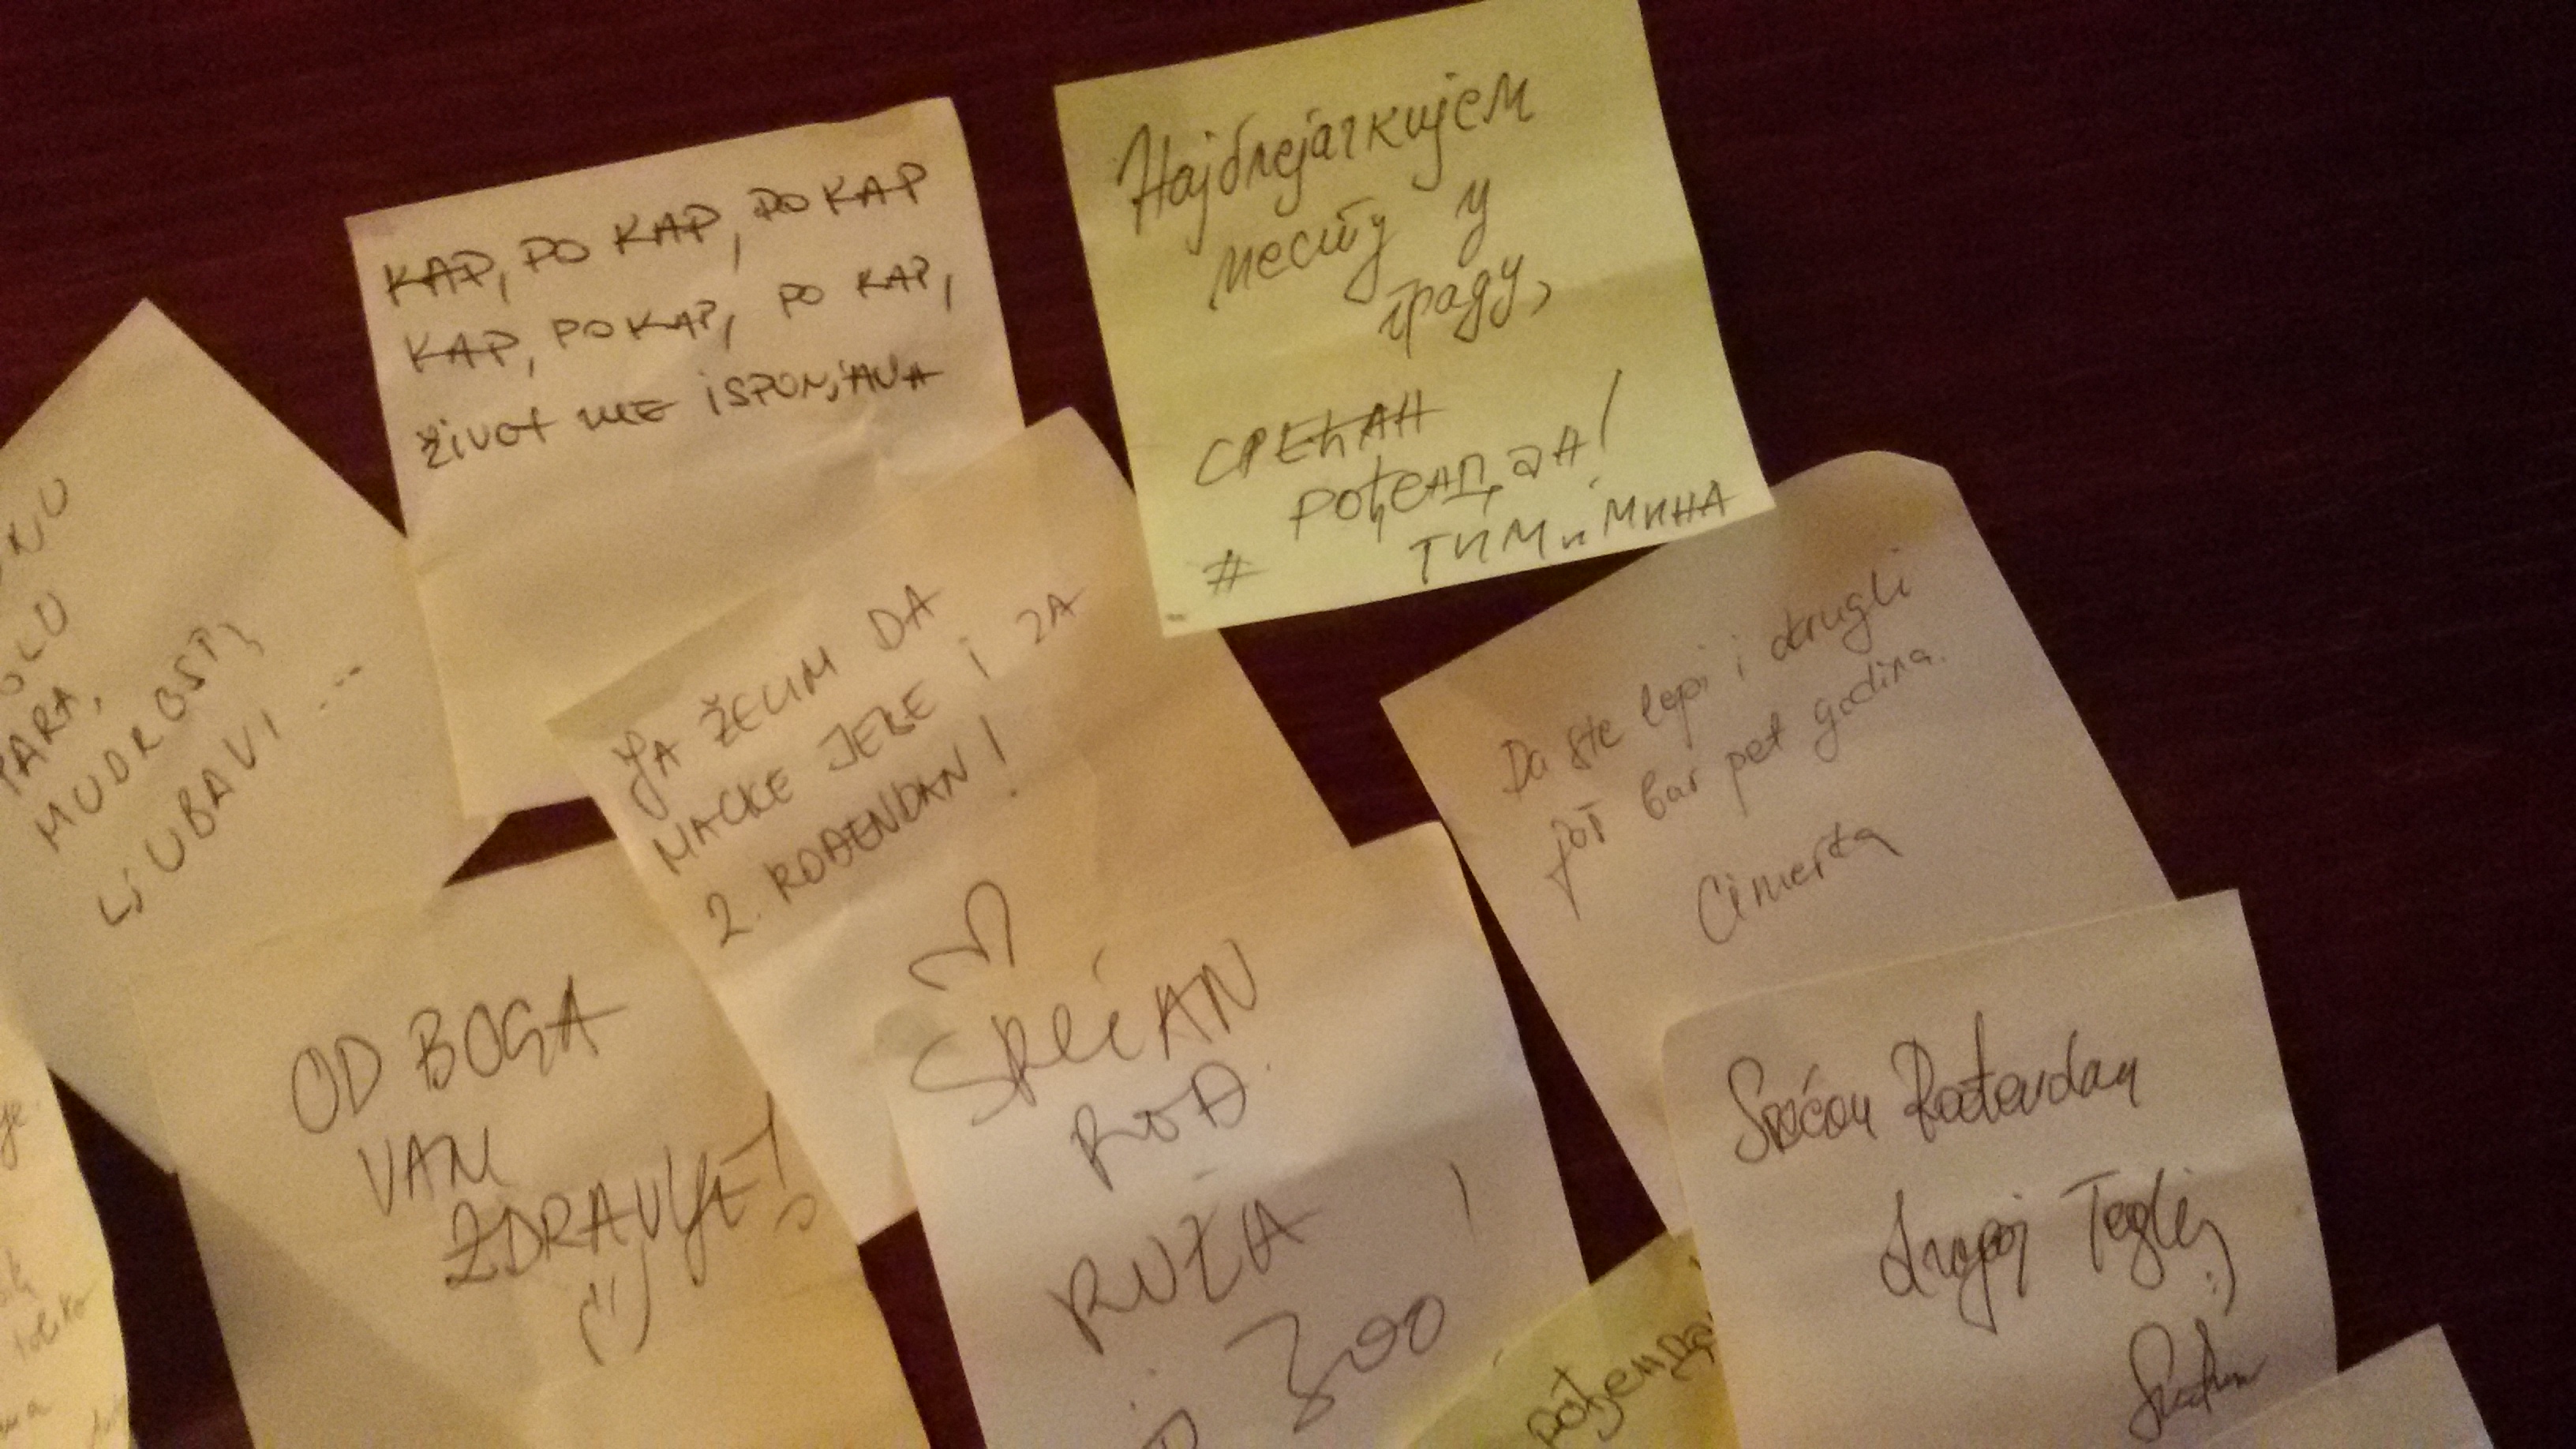 KAP, PO KAP, PO KAP
KAP, PO KAP, PO KAP,
ŽIVOT ME ISPUNJAVA
Најблејачкијем
месту у
граду,
СРЕЋАН
РОЂЕНДАН!
# ТИМ и МИНА
PARA,
MUDROSTI,
LJUBAVI ...
JA ŽELIM DA
MACKE JEBE I ZA
2. ROĐENDAN!
Da ste lepi i okrugli
još bar pet godina.
Cimerka
OD BOGA
VAM
ZDRAVLJE!
SREĆAN
ROĐ.
RUŽA !
ZOO
Srećan Rođendan
dragoj Teglij
:)
рођендан
toliko